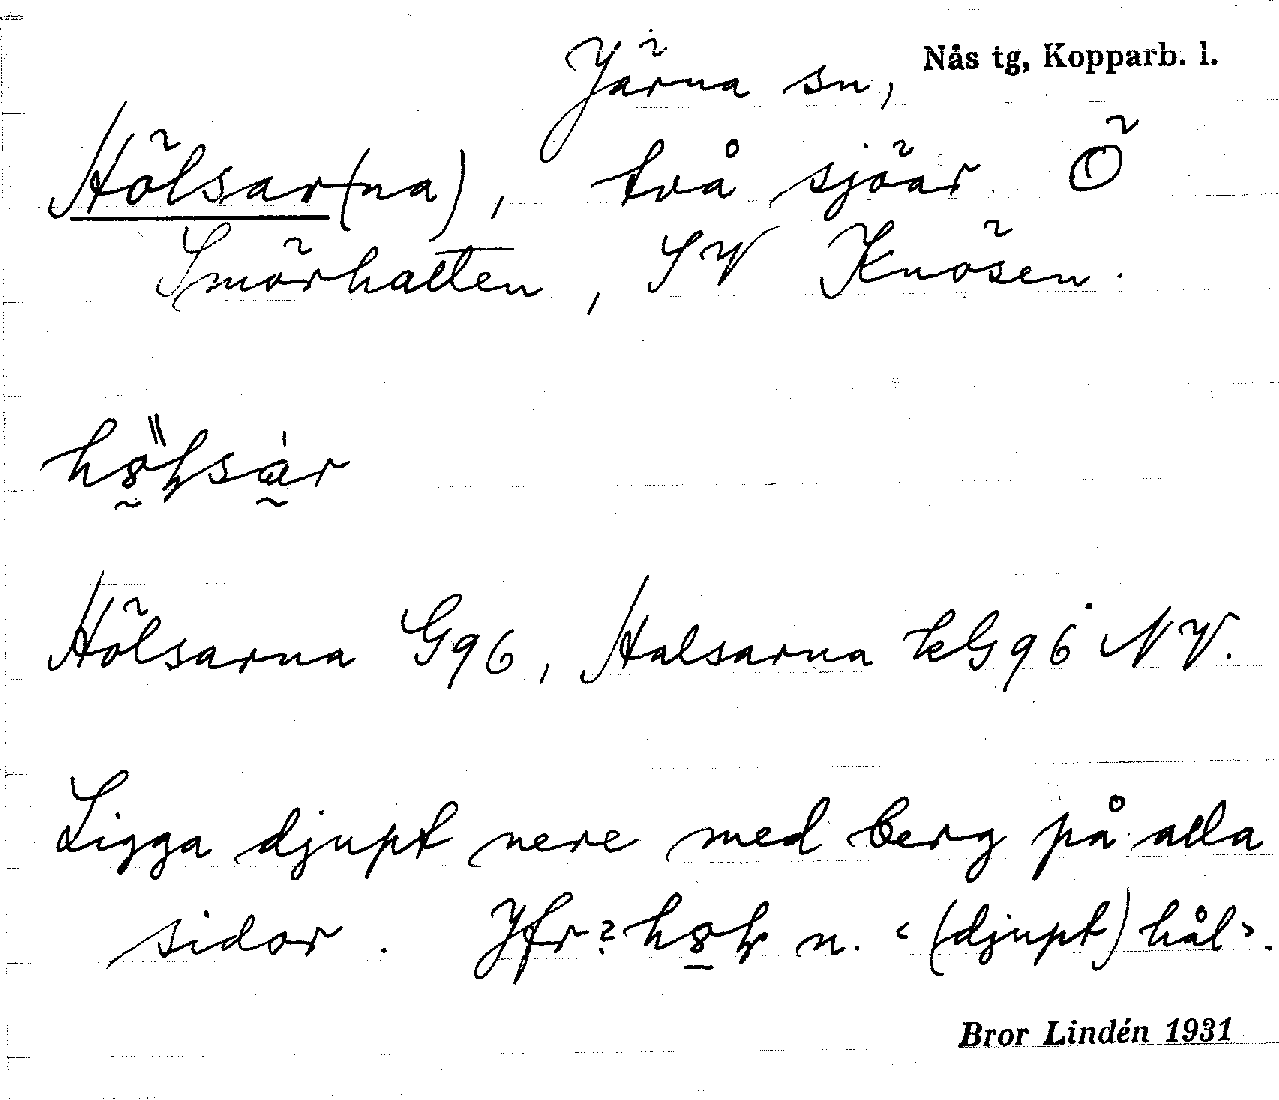 Järna sn, Nås tg, Kopparb. l.
Hölsar(na), två sjöar Ö
Smörhatten, SV Knösen.
Hölsarna G96, Halsarna kG96 NV.
Ligga djupt nere med berg på alla
sidor. Jfr? n. "(djupt) hål".
Bror Lindén 1931